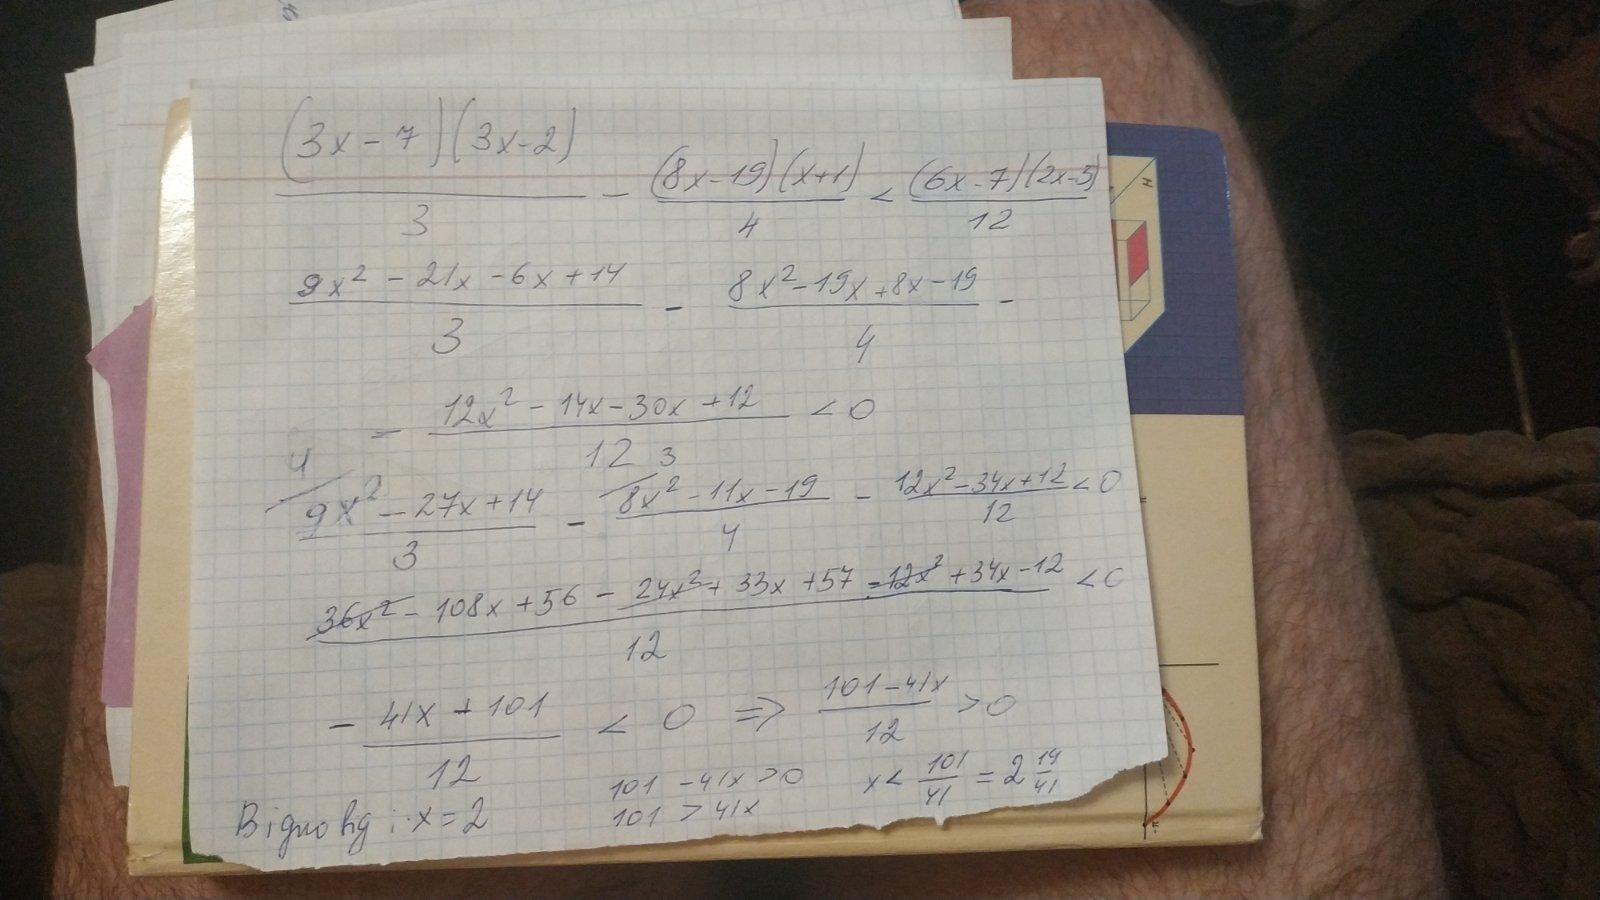 (3x-7)(3x-2)/3 - (8x-19)(x+1)/4 < (6x-7)(2x-5)/12
9x² - 21x - 6x + 14/3 - 8x² - 19x + 8x - 19/4 -
- 12x² - 14x - 30x + 12/12 < 0
4 3
9x² - 27x + 14/3 - 8x² - 11x - 19/4 - 12x² - 34x + 12/12 < 0
36x² - 108x + 56 - 24x² + 33x + 57 - 12x² + 34x - 12/12 < 0
- 41x + 101/12 < 0 ⇒ 101 - 41x/12 > 0
101 - 41x > 0 x < 101/41 = 2 19/41
101 > 41x
Відповід: x = 2
H